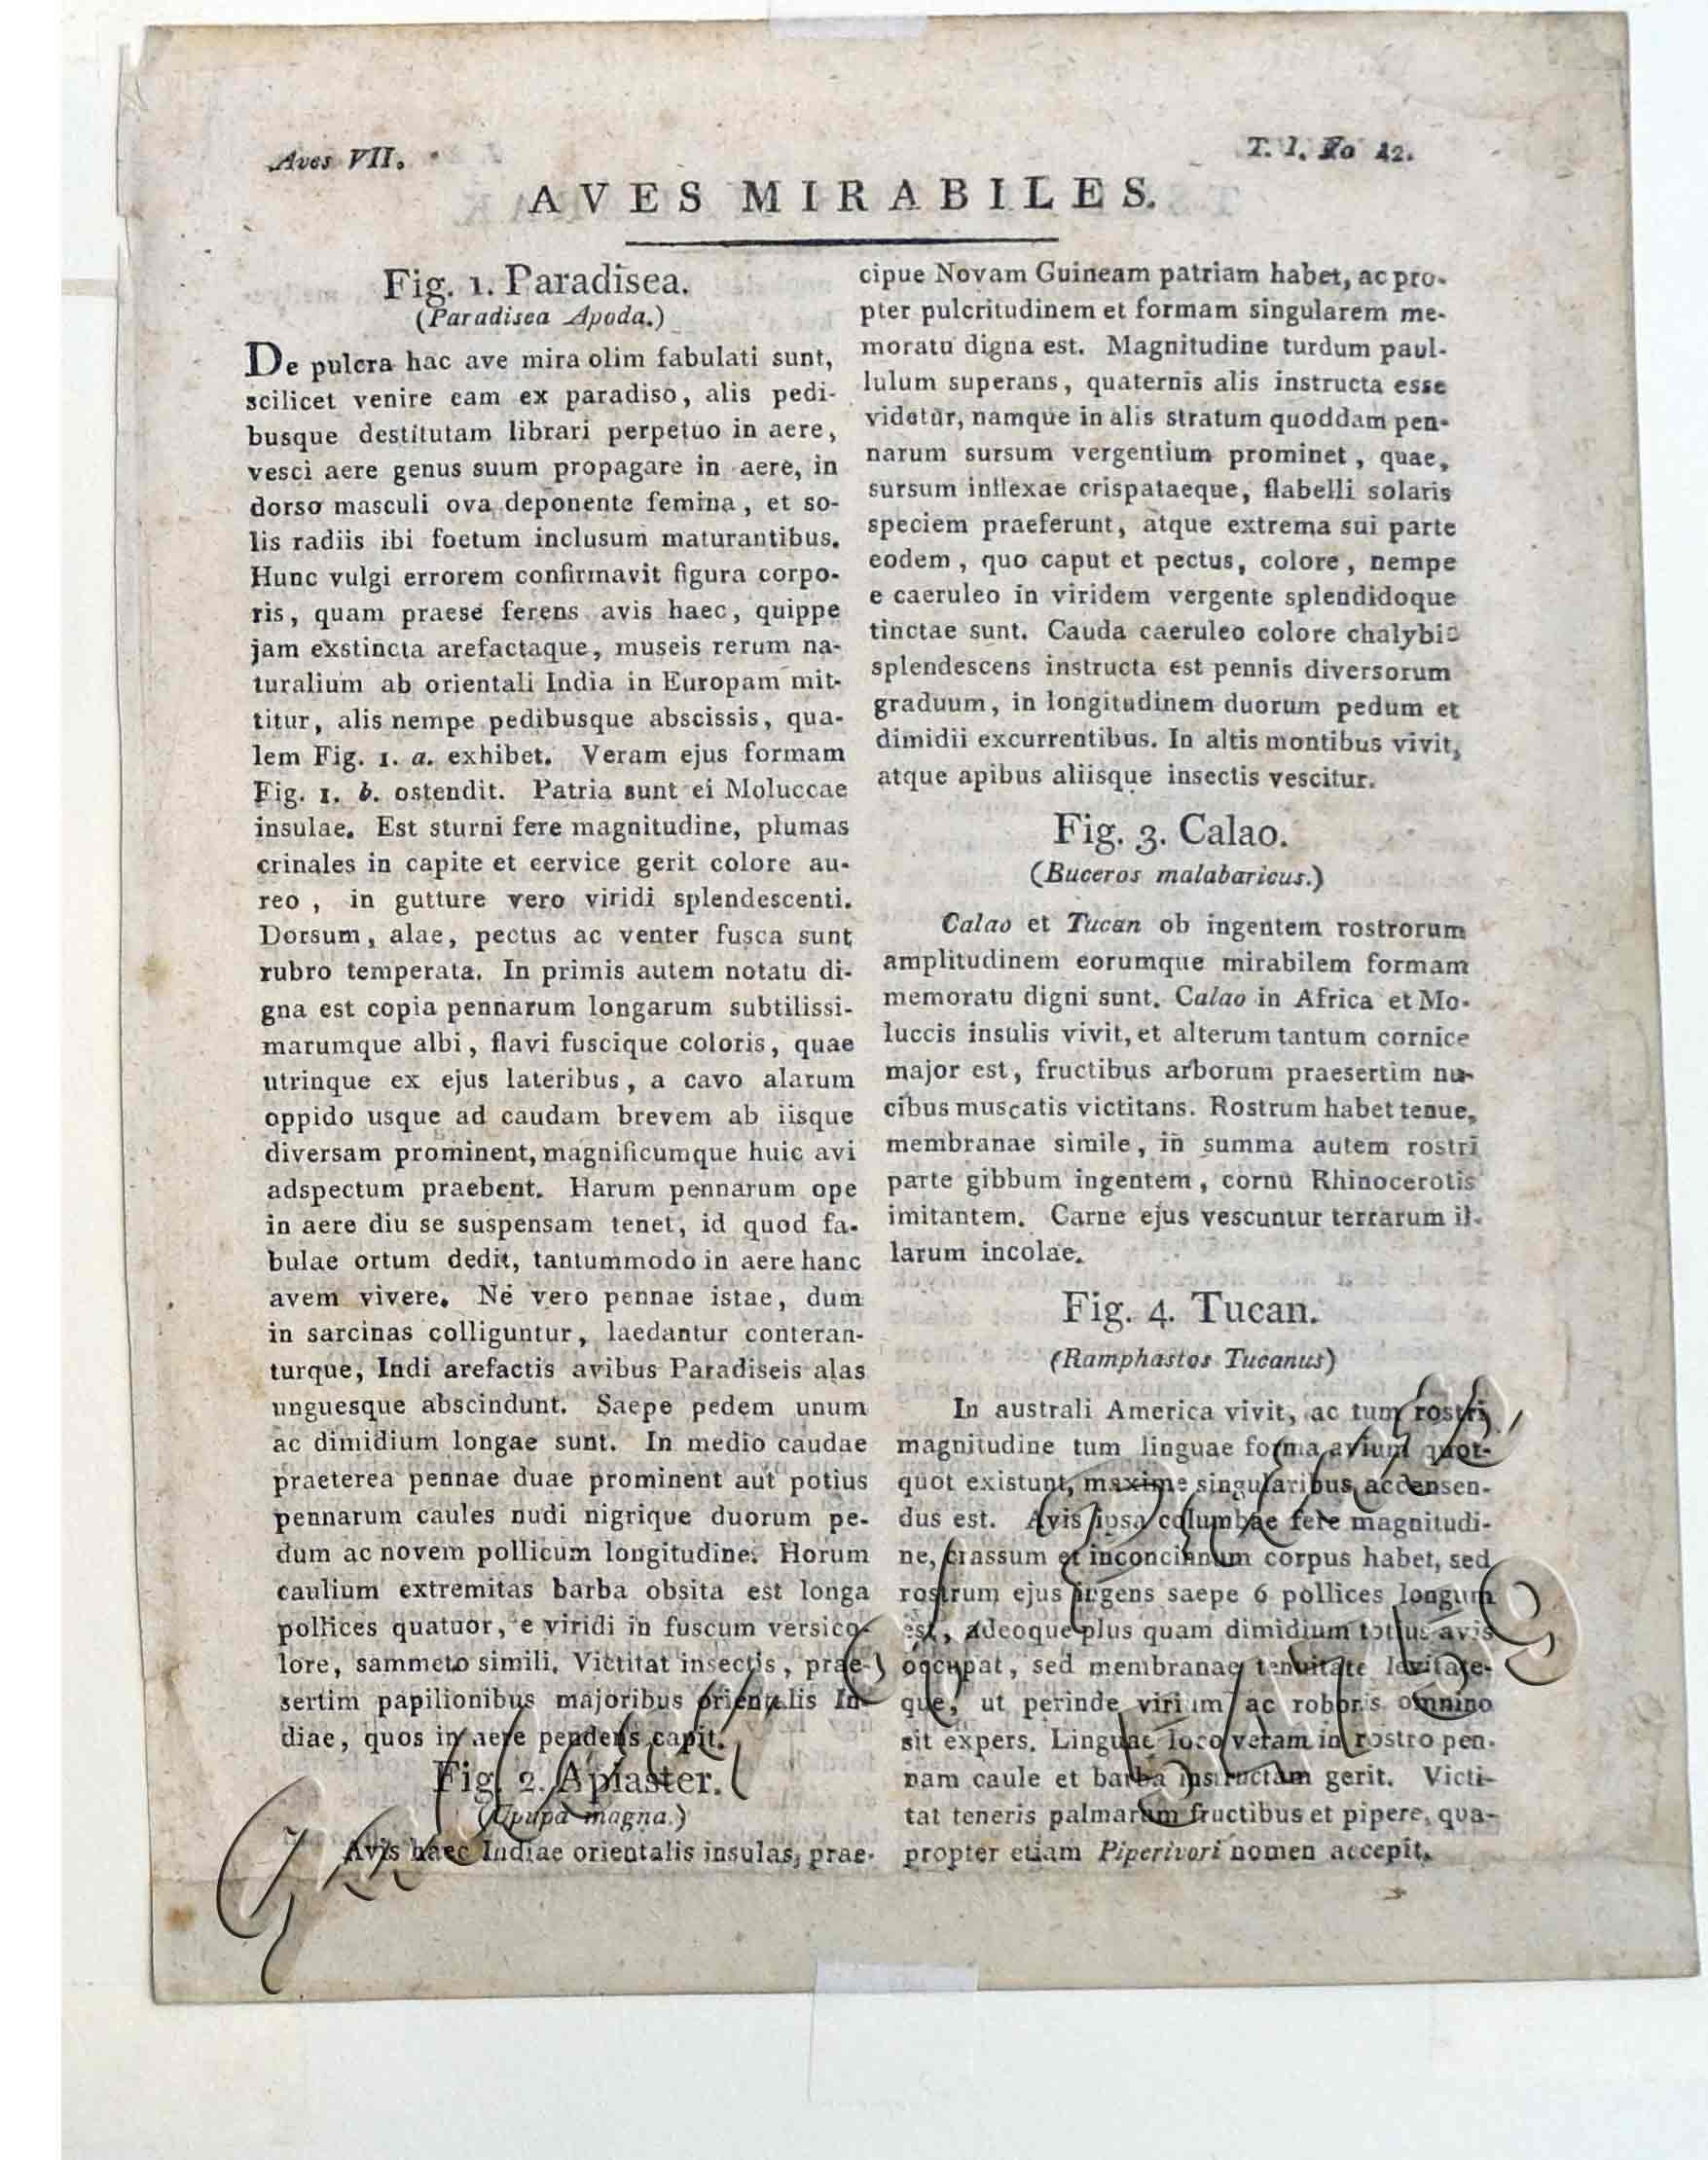 Aves VII.
T. I. No 42.
AVES MIRABILES.
Fig. 1. Paradisea.
(Paradisea Apoda.)
De pulcra hac ave mira olim fabulati sunt,
scilicet venire eam ex paradiso, alis pedi-
busque destitutam librari perpetuo in aere,
vesci aere genus suum propagare in aere, in
dorso masculi ova deponente femina, et so-
lis radiis ibi foetum inclusum maturantibus.
Hunc vulgi errorem confirmavit figura corpo-
ris, quam praese ferens avis haec, quippe
jam exstincta arefactaque, museis rerum na-
turalium ab orientali India in Europam mit-
titur, alis nempe pedibusque abscissis, qua-
lem Fig. 1. a. exhibet. Veram ejus formam
Fig. 1. b. ostendit. Patria sunt ei Moluccae
insulae. Est sturni fere magnitudine, plumas
crinales in capite et cervice gerit colore au-
reo, in gutture vero viridi splendescenti.
Dorsum, alae, pectus ac venter fusca sunt
rubro temperata. In primis autem notatu di-
gna est copia pennarum longarum subtilissi-
marumque albi, flavi fuscique coloris, quae
utrinque ex ejus lateribus, a cavo alarum
oppido usque ad caudam brevem ab iisque
diversam prominent, magnificumque huic avi
adspectum praebent. Harum pennarum ope
in aere diu se suspensam tenet, id quod fa-
bulae ortum dedit, tantummodo in aere hanc
avem vivere. Ne vero pennae istae, dum
in sarcinas colliguntur, laedantur conteran-
turque, Indi arefactis avibus Paradiseis alas
unguesque abscindunt. Saepe pedem unum
ac dimidium longae sunt. In medio caudae
praeterea pennae duae prominent aut potius
pennarum caules nudi nigrique duorum pe-
dum ac novem pollicum longitudine. Horum
caulium extremitas barba obsita est longa
pollices quatuor, e viridi in fuscum versico-
lore, sammeto simili. Victitat insectis, prae-
sertim papilionibus majoribus orientalis In-
diae, quos in aere pendens capit.
Fig. 2. Apiaster.
(Upupa magna.)
Avis haec Indiae orientalis insulas, prae-
cipue Novam Guineam patriam habet, ac pro-
pter pulcritudinem et formam singularem me-
moratu digna est. Magnitudine turdum paul-
lulum superans, quaternis alis instructa esse
videtur, namque in alis stratum quoddam pen-
narum sursum vergentium prominet, quae,
sursum inflexae crispataeque, flabelli solaris
speciem praeferunt, atque extrema sui parte
eodem, quo caput et pectus, colore, nempe
e caeruleo in viridem vergente splendidoque
tinctae sunt. Cauda caeruleo colore chalybis
splendescens instructa est pennis diversorum
graduum, in longitudinem duorum pedum et
dimidii excurrentibus. In altis montibus vivit,
atque apibus aliisque insectis vescitur.
Fig. 3. Calao.
(Buceros malabaricus.)
Calao et Tucan ob ingentem rostrorum
amplitudinem eorumque mirabilem formam
memoratu digni sunt. Calao in Africa et Mo-
luccis insulis vivit, et alterum tantum cornice
major est, fructibus arborum praesertim nu-
cibus muscatis victitans. Rostrum habet tenue,
membranae simile, in summa autem rostri
parte gibbum ingentem, cornu Rhinocerotis
imitantem. Carne ejus vescuntur terrarum il-
larum incolae.
Fig. 4. Tucan.
(Ramphastos Tucanus)
In australi America vivit, ac tum rostri
magnitudine tum linguae forma avium quot-
quot existunt, maxime singularibus accensen-
dus est. Avis ipsa columbae fere magnitudi-
ne, crassum et inconcinnum corpus habet, sed
rostrum ejus ingens saepe 6 pollices longum
est, adeoque plus quam dimidium totius avis
occupat, sed membranae tenuitate levitate-
que, ut perinde virium ac roboris omnino
sit expers. Linguae loco veram in rostro pen-
nam caule et barba instructam gerit. Victi-
tat teneris palmarum fructibus et pipere, qua-
propter etiam Piperivori nomen accepit.